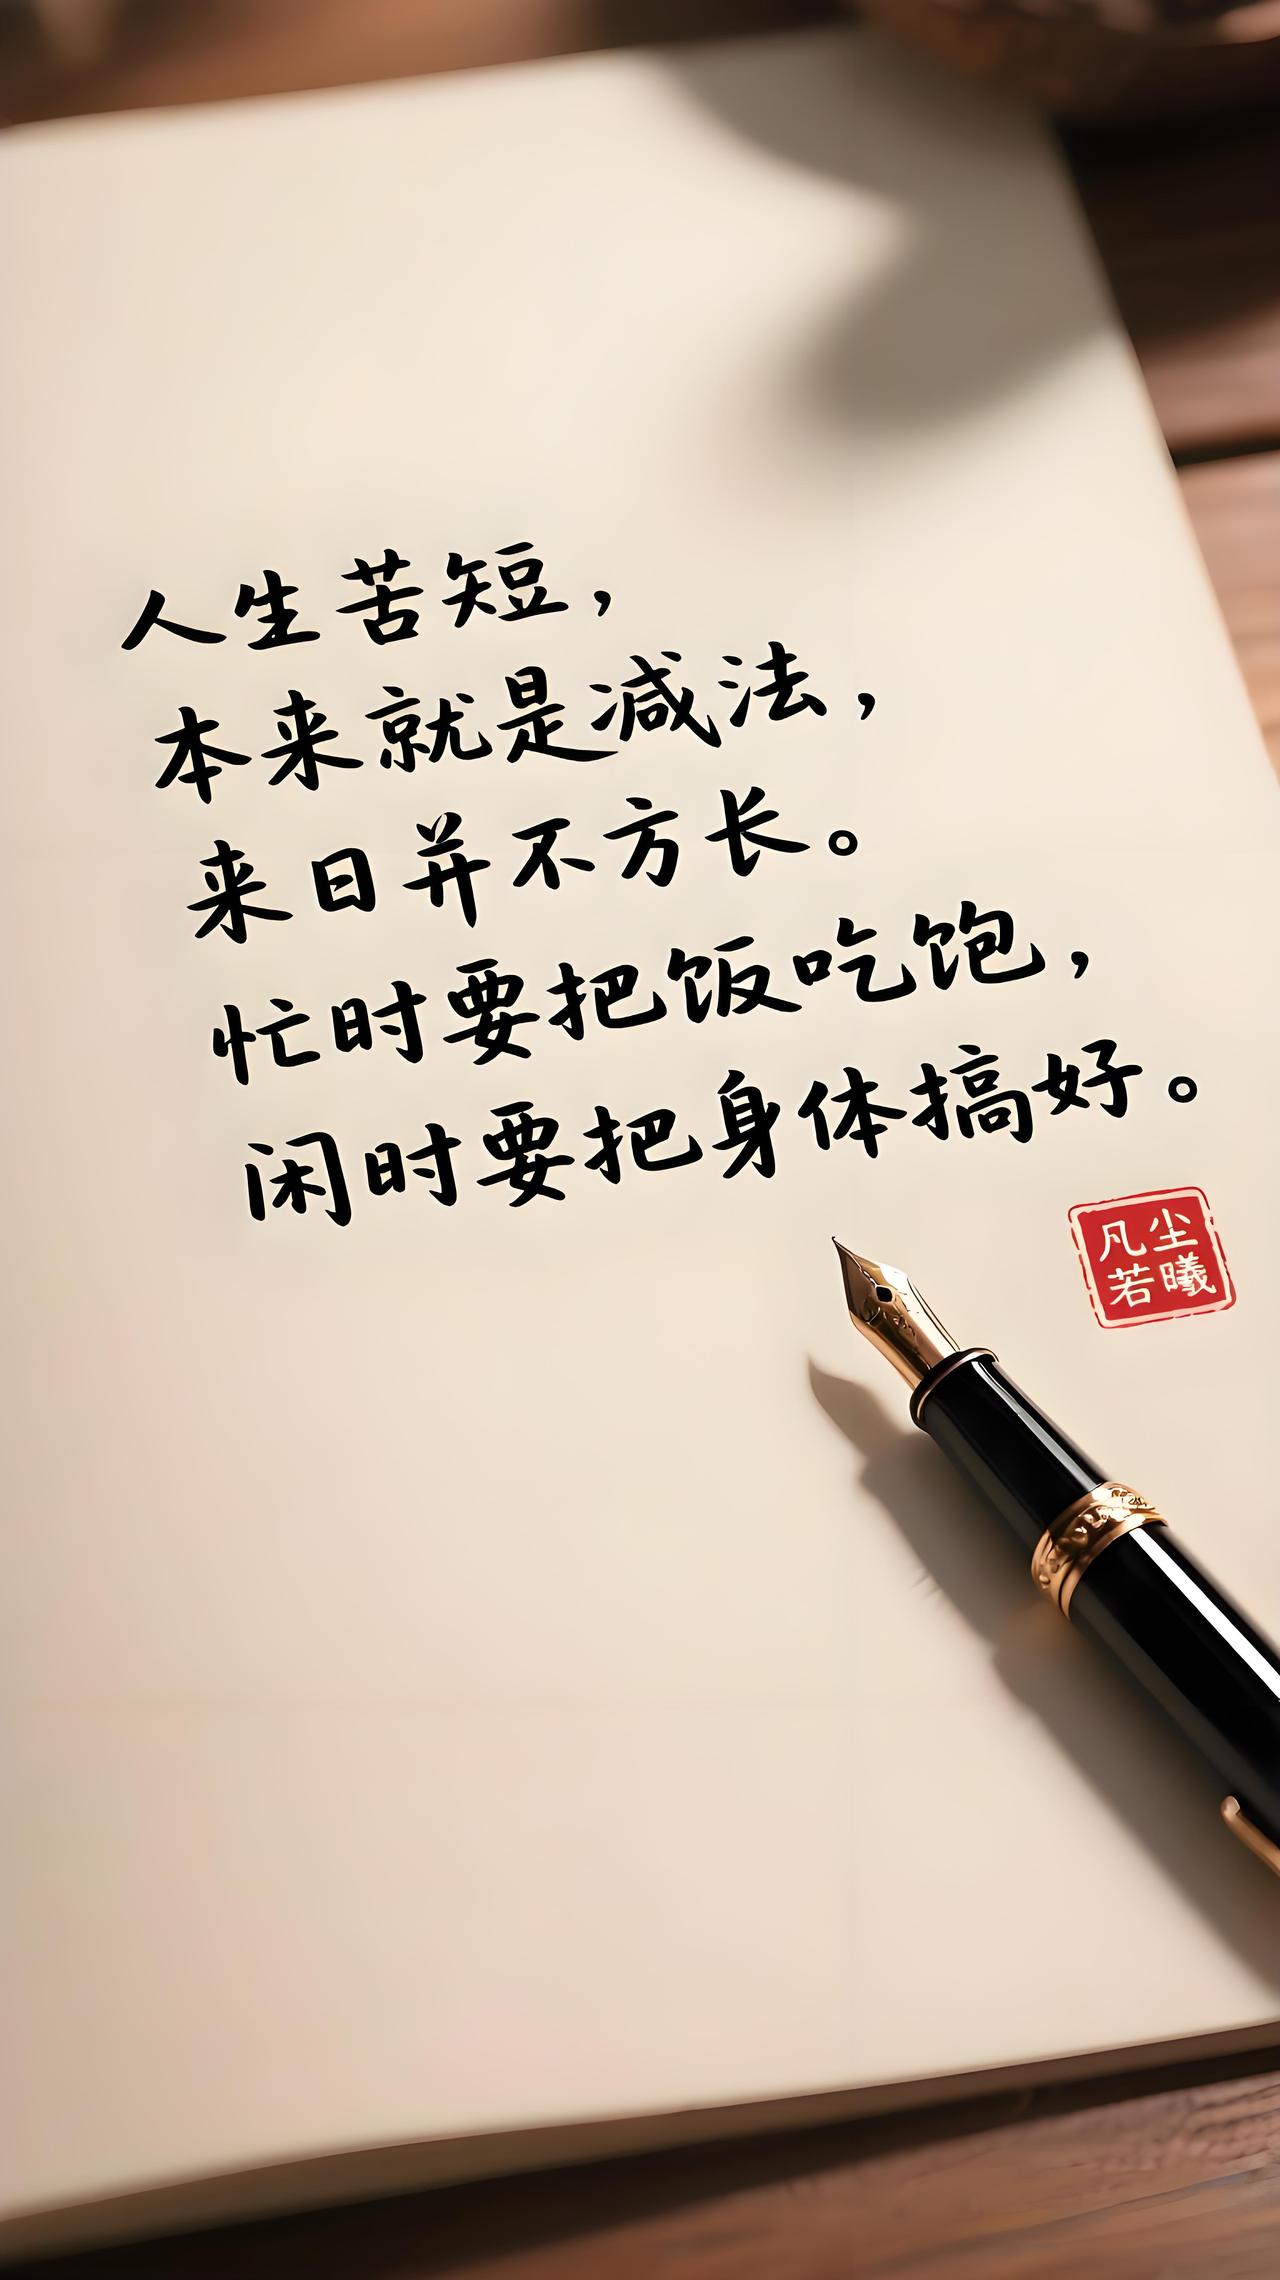 人生苦短，
本来就是减法，
来日并不方长。
忙时要把饭吃饱，
闲时要把身体搞好。
凡尘
若曦